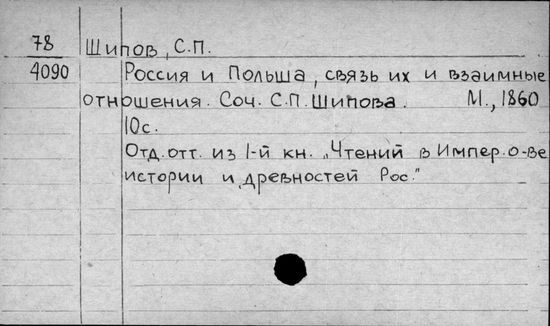 78 Шипов, С.П.
4090 Россия и Польша, связь их и взаимные
отношения. Соч. С.П. Шипова. М., 1860
10с.
Отд. отт. из 1-й кн. „Чтений в Импер. о-ве
истории и древностей Рос."